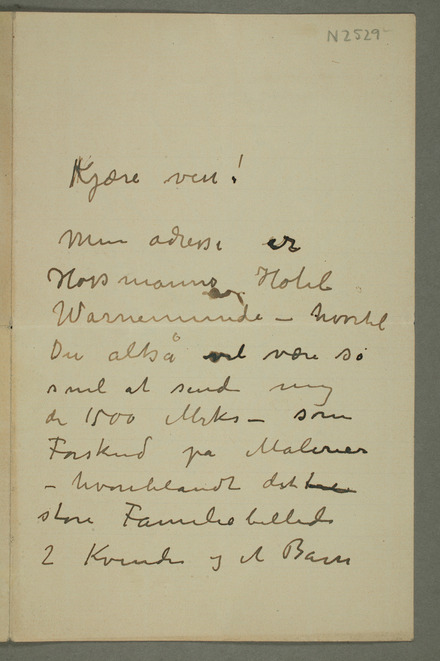 N 2529
Kjære ven!
Min adresse er
Horsmanns Hotel
Warnemünde – hvortil
Du altså vil være så
snil at sende mig
de 1500 Mrks – som
Forskud på Malerier
– hvoriblandt det
store Familiebilled
2 Kvinder og et Barn